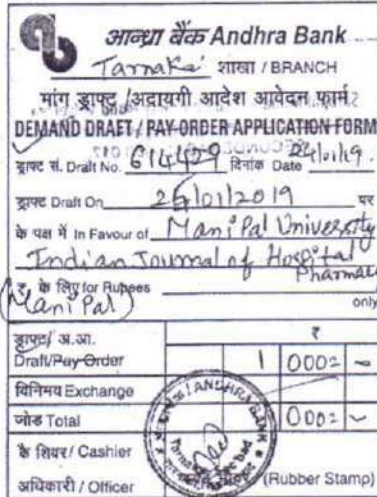 आन्ध्रा बैंक Andhra Bank
Tarnaka शाखा / BRANCH
मांग ड्राफ्ट / अदायगी आदेश आवेदन फार्म
DEMAND DRAFT / PAY-ORDER APPLICATION FORM
ड्राफ्ट सं. Draft No. 614429 दिनांक Date 24/01/19.
ड्राफ्ट Draft On 24/01/2019 पर
के पक्ष में In Favour of Manipal University
Indian Journal of Hospital
Pharmacy
रु. के लिए for Rupees only
(Manipal)
₹
ड्राफ्ट/ अ.आ.
Draft/Pay-Order 1 000=
विनिमय Exchange
जोड Total 000=
ANDHRA BANK
के शियर/ Cashier
अधिकारी / Officer (Rubber Stamp)